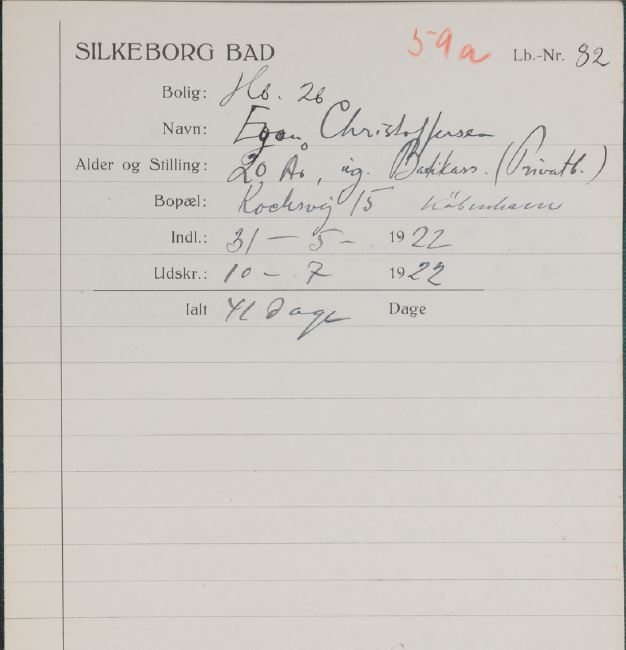 SILKEBORG BAD 59a Lb.-Nr. 82
Bolig: Hb. 26
Navn: Egon Christoffersen
Alder og Stilling: 20 År, ug. (Privatb.)
Bopæl: Kochsvej 15 København
Indl.: 31 - 5 - 1922
Udskr.: 10 - 7 1922
Ialt 41 Dage Dage